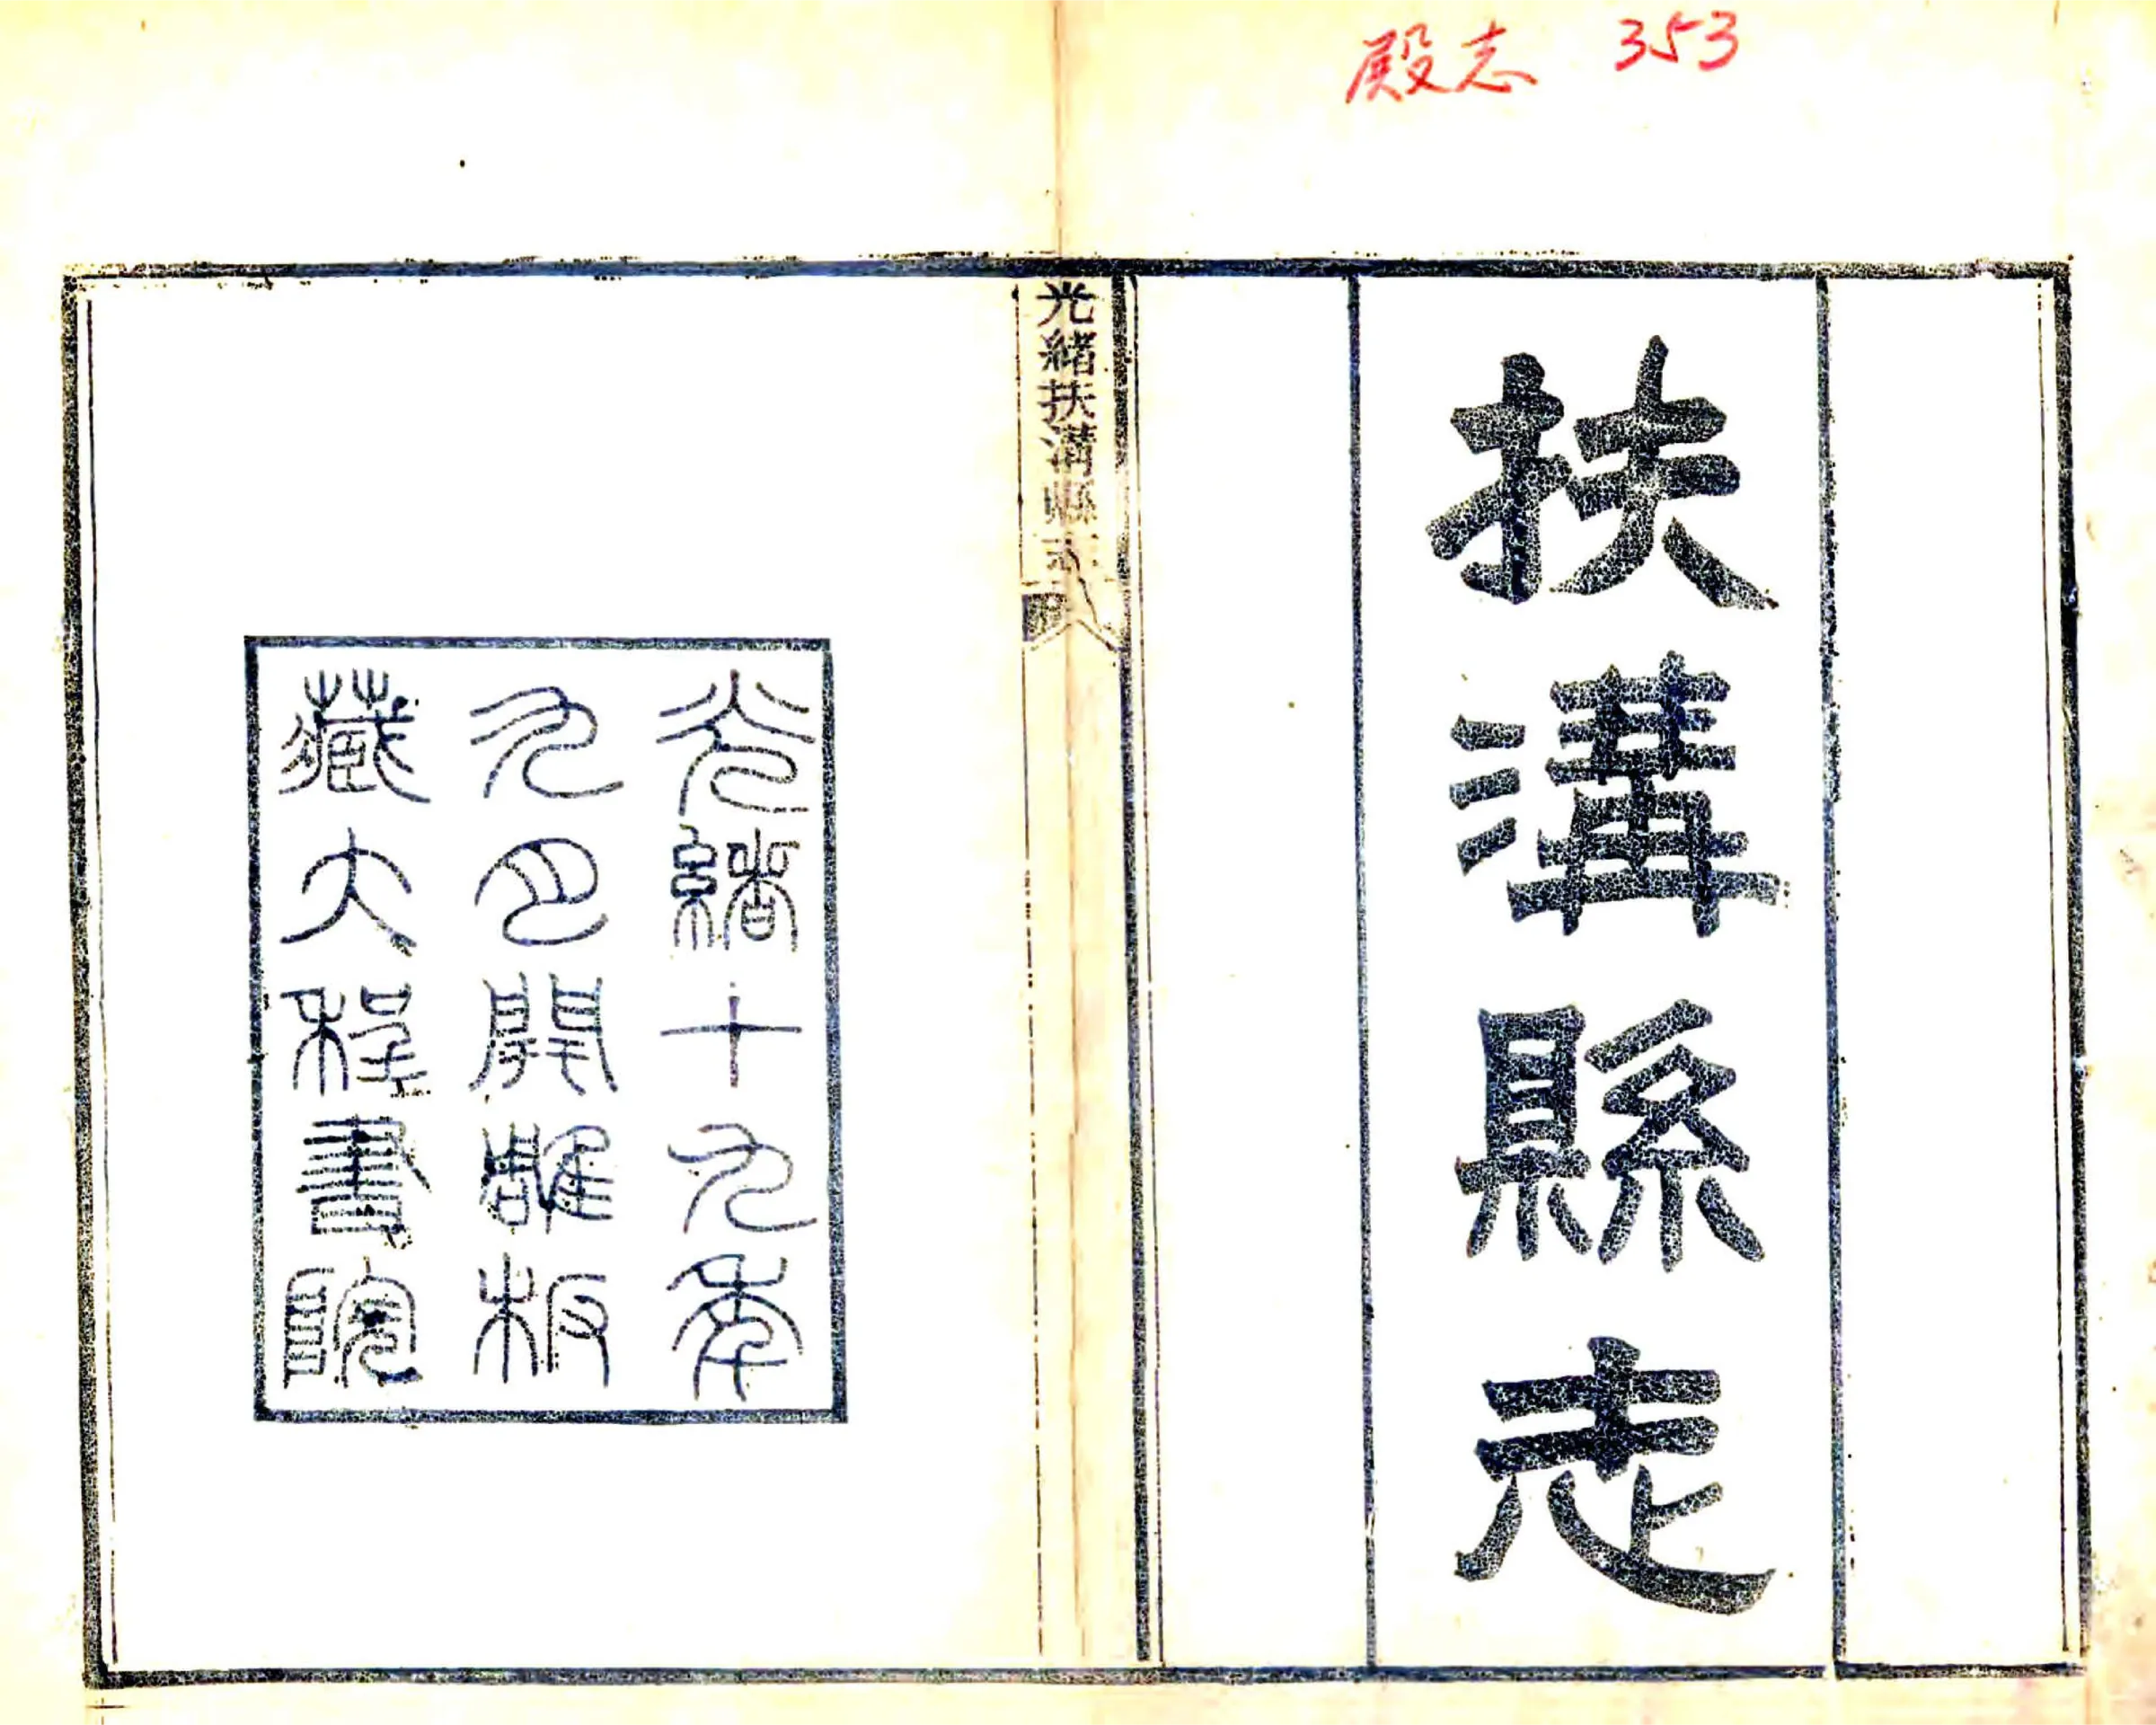 殿志 353
扶溝縣志
光緒扶溝縣志
光緒十九年
九月開雕板
藏大程書院